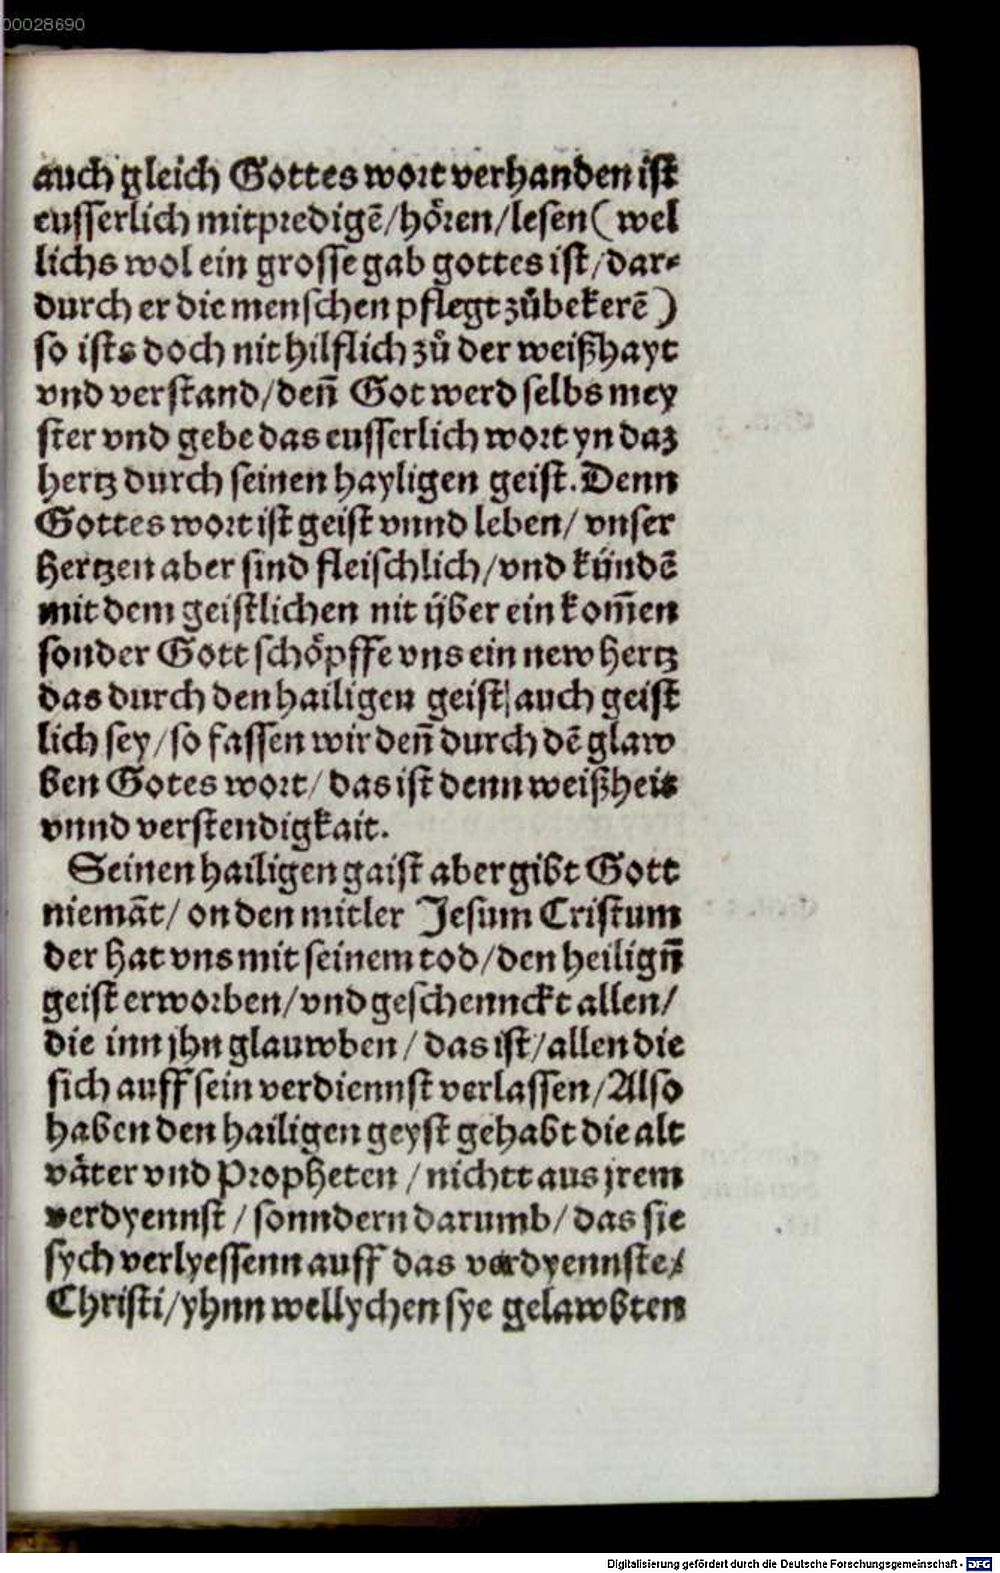 00028690
auch gleich Gottes wort verhanden ist
eusserlich mit predigē/hören/lesen (wel
lichs wol ein grosse gab gottes ist/dar⸗
durch er die menschen pflegt zůbekerē)
so ists doch nit hilflich zů der weißhayt
vnd verstand/den̄ Got werd selbs mey
ster vnd gebe das eusserlich wort yn daz
hertz durch seinen hayligen geist. Denn
Gottes wort ist geist vnnd leben/ vnser
hertzen aber sind fleischlich/vnd kündē
mit dem geistlichen nit über ein kom̄en
sonder Gott schöpffe vns ein new hertz
das durch den hailigen geist/ auch geist
lich sey/so fassen wir den̄ durch dē glaw
ben Gotes wort/ das ist denn weißheit
vnnd verstendigkait.
Seinen hailigen gaist aber gibt Gott
niemāt/ on den mitler Jesum Cristum
der hat vns mit seinem tod/den heilign̄
geist erworben/vnd geschennckt allen/
die inn jhn glauwben/ das ist/allen die
sich auff sein verdiennst verlassen/Also
haben den hailigen geyst gehabt die alt
väter vnd Propheten/nichtt aus jrem
verdyennst/sonndern darumb/das sie
sych verlyessenn auff das verdyennste/
Christi/yhnn wellychen sye gelawbten
Digitalisierung gefördert durch die Deutsche Forschungsgemeinschaft - DFG